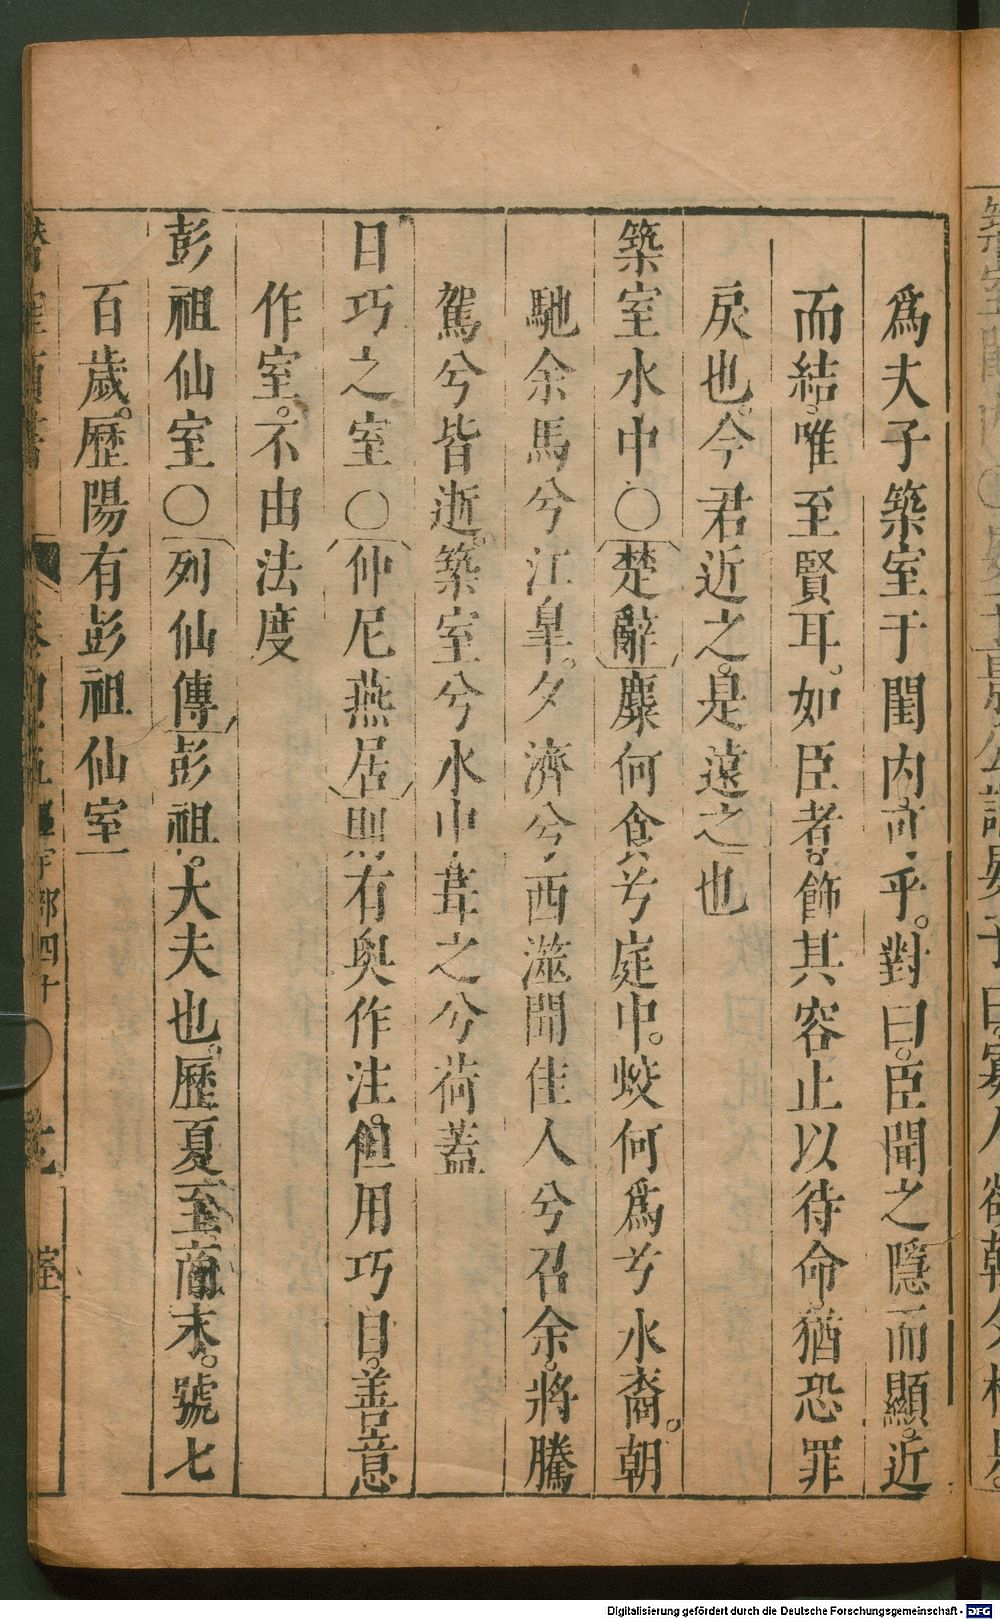 爲夫子築室于閨內可乎。對曰。臣聞之隱而顯。近
而結。唯至賢耳。如臣者。飾其容止以待命。猶恐罪
戾也。今君近之。是遠之也
築室水中○楚辭麋何食兮庭中。蛟何爲兮水裔。朝
馳余馬兮江臯。夕濟兮西澨聞佳人兮召余。將騰
駕兮皆逝。築室兮水中葺之兮荷蓋
目巧之室○仲尼燕居則有奥作注。但用巧目。善意
作室。不由法度
彭祖仙室○列仙傳彭祖。大夫也。歷夏至商末。號七
百歲。歷陽有彭祖仙室
宇部四十
室
Digitalisierung gefördert durch die Deutsche Forschungsgemeinschaft - DFG